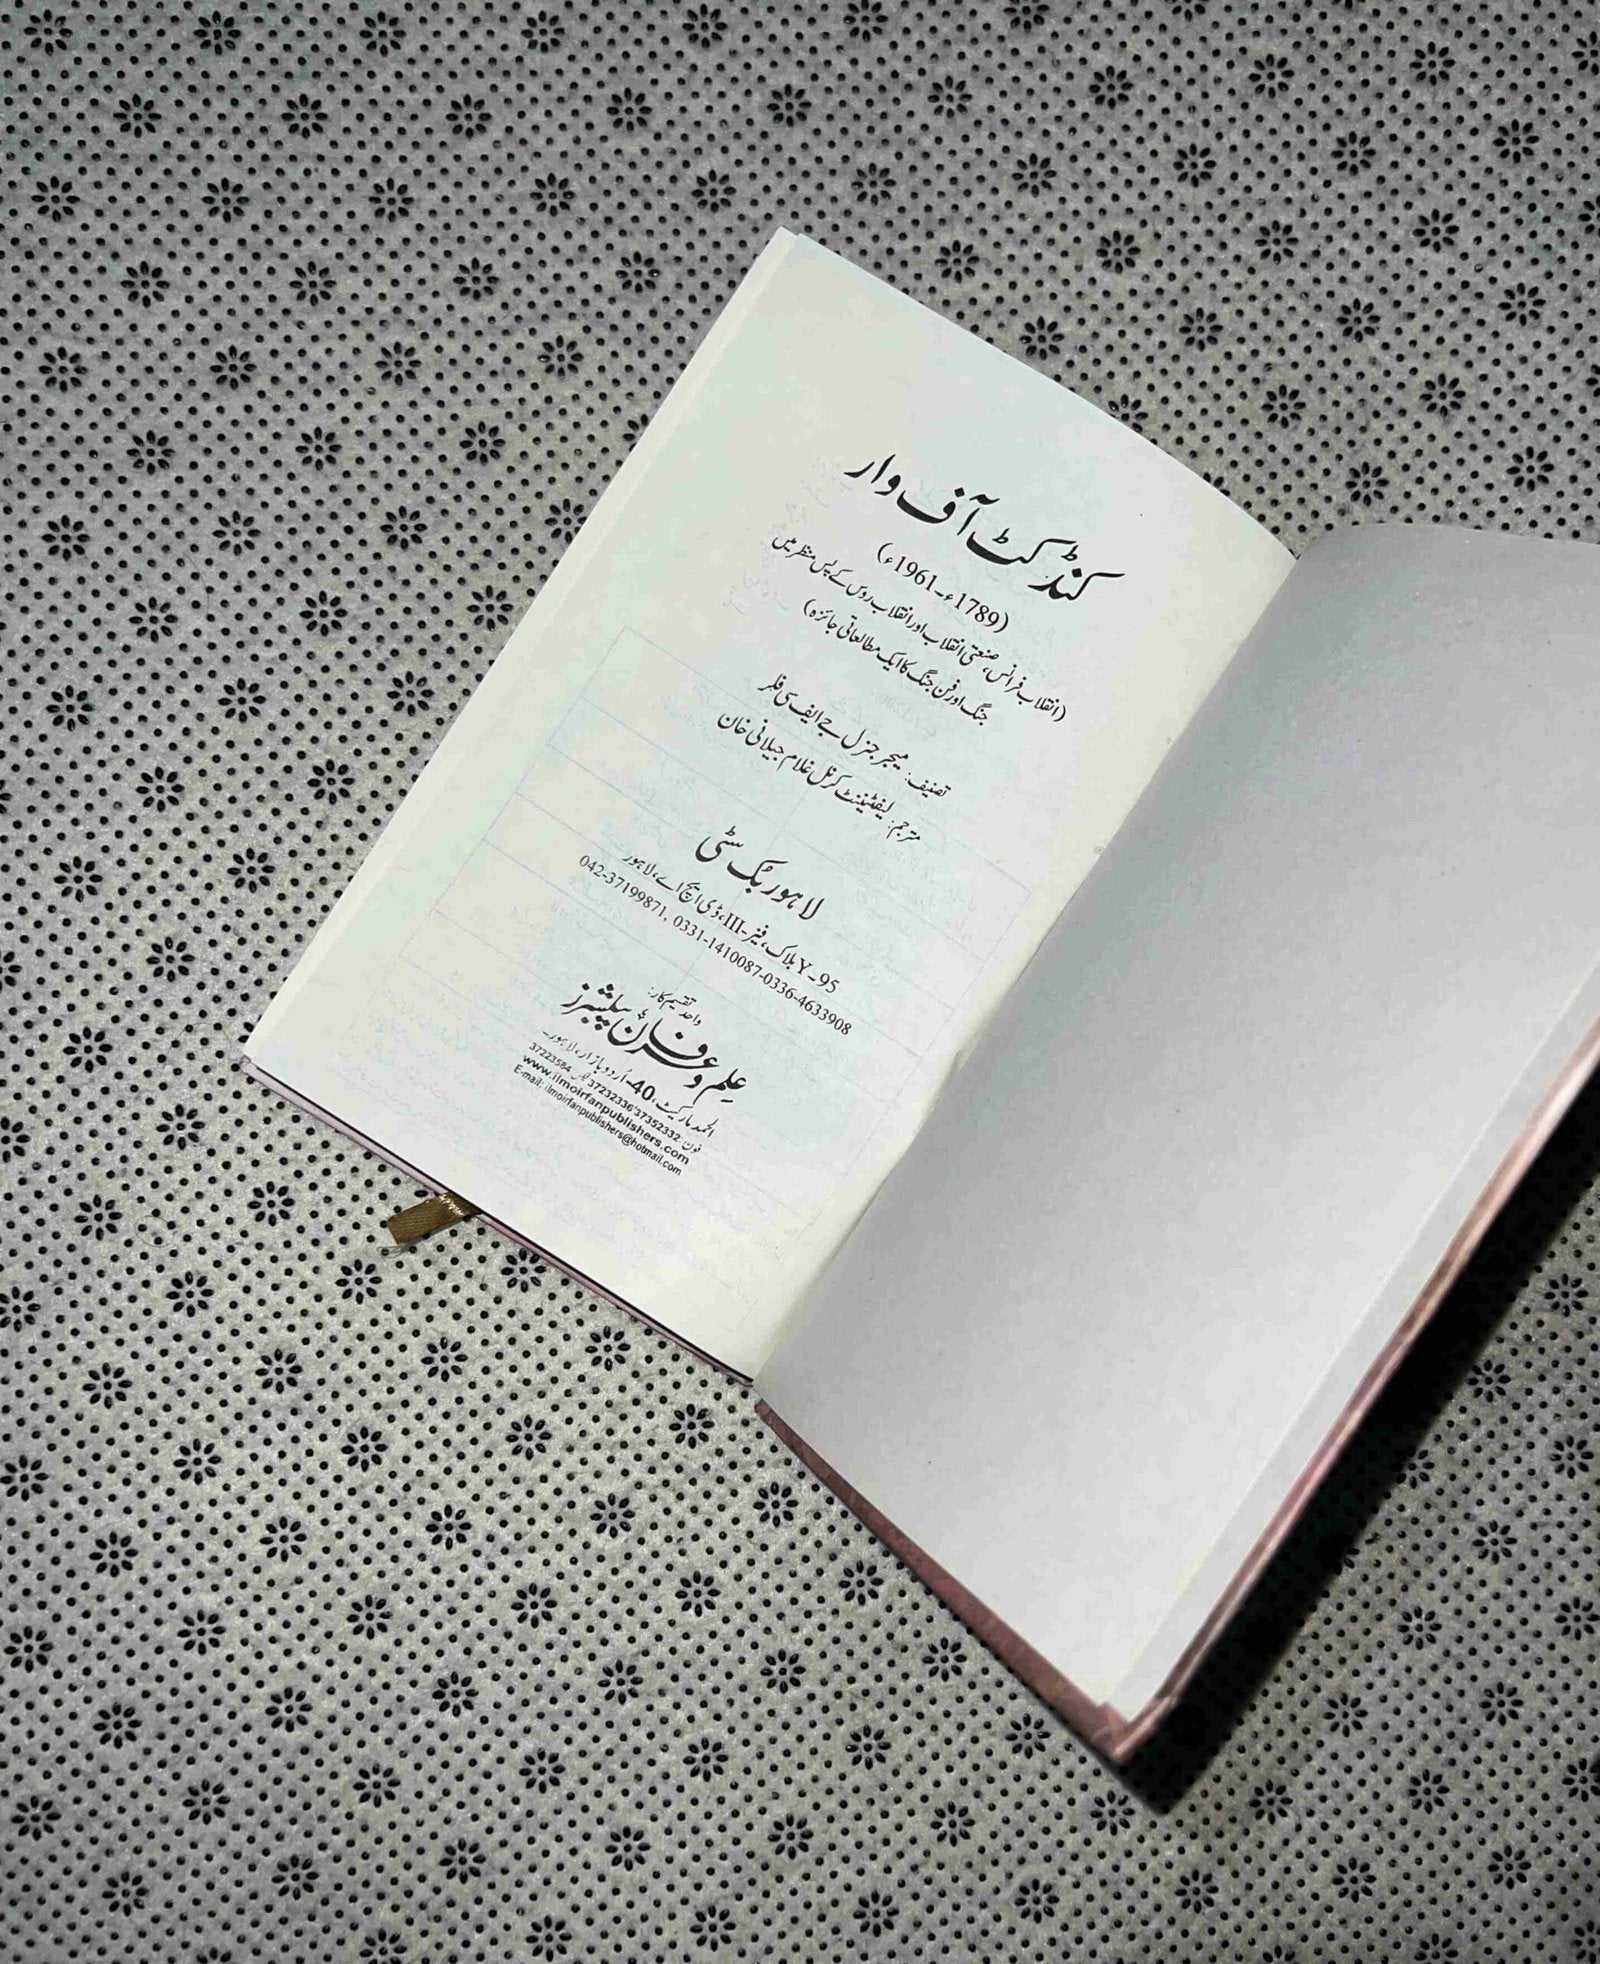 کنڈکٹ آف وار
(1789ء-1961ء)
(انقلاب فرانس، صنعتی انقلاب اور انقلاب روس کے پس منظر میں
جنگ اور فن جنگ کا ایک مطالعاتی جائزہ)
تصنیف: میجر جنرل جے ایف سی فلر
مترجم: لیفٹیننٹ کرنل غلام جیلانی خان
لاہور بُک سٹی
95-Y بلاک، فیز-III، ڈی ایچ اے، لاہور
042-37199871, 0331-1410087-0336-4633908
واحد تقسیم کار:
علم و عرفان پبلشرز
الحمد مارکیٹ، 40-اُردو بازار، لاہور۔
فون: 37352332-37232336 37223584
www.ilmoirfanpublishers.com
E-mail: ilmoirfanpublishers@hotmail.com